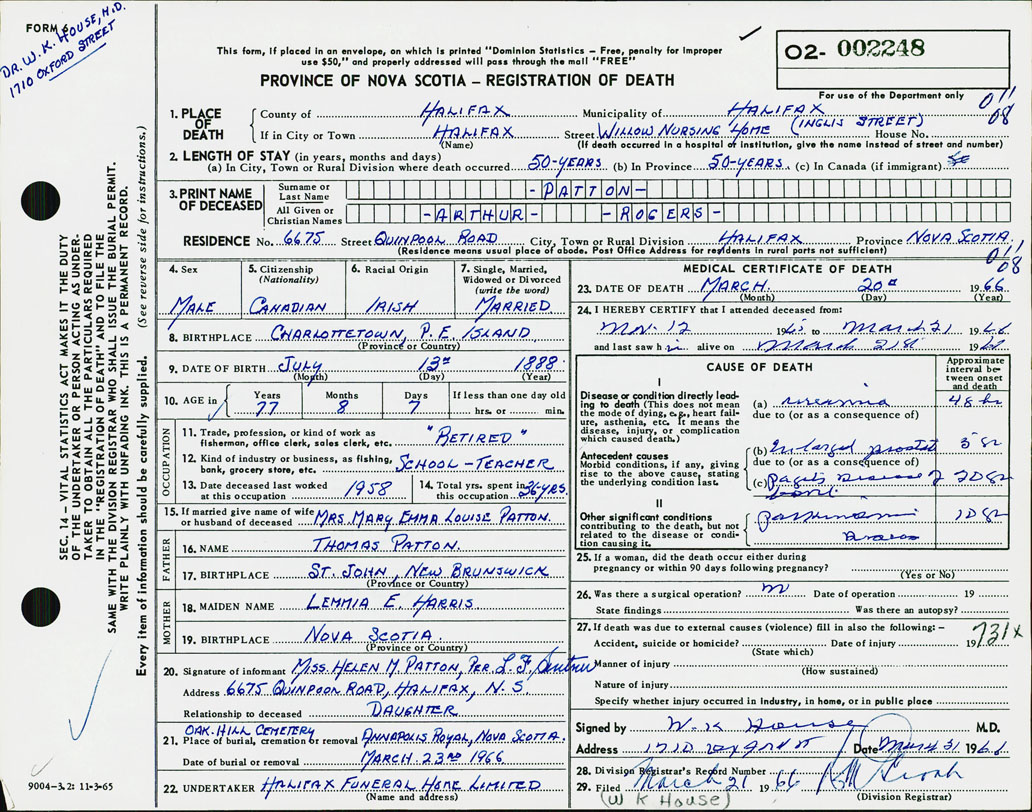 FORM 6
DR. W. K. HOUSE, M.D.
1710 OXFORD STREET
This form, if placed in an envelope, on which is printed "Dominion Statistics – Free, penalty for improper
use $50," and properly addressed will pass through the mail "FREE"
PROVINCE OF NOVA SCOTIA – REGISTRATION OF DEATH
02- 002248
For use of the Department only
011
08
1. PLACE OF DEATH
County of HALIFAX Municipality of HALIFAX
If in City or Town HALIFAX Street WILLOW NURSING HOME (INGLIS STREET) House No.
(Name) (If death occurred in a hospital or institution, give the name instead of street and number)
2. LENGTH OF STAY (in years, months and days)
(a) In City, Town or Rural Division where death occurred 50-YEARS. (b) In Province 50-YEARS. (c) In Canada (if immigrant)
3. PRINT NAME OF DECEASED
Surname or Last Name -PATTON-
All Given or Christian Names -ARTHUR- -ROGERS-
RESIDENCE No. 6675 Street QUINPOOL ROAD City, Town or Rural Division HALIFAX Province NOVA SCOTIA.
(Residence means usual place of abode. Post Office Address for residents in rural parts not sufficient)
011
08
4. Sex
MALE
5. Citizenship
(Nationality)
CANADIAN
6. Racial Origin
IRISH
7. Single, Married,
Widowed or Divorced
(write the word)
MARRIED.
8. BIRTHPLACE CHARLOTTETOWN, P.E. ISLAND
(Province or Country)
9. DATE OF BIRTH JULY 13th 1888.
(Month) (Day) (Year)
10. AGE in Years 77 Months 8 Days 7 If less than one day old
hrs. or min.
OCCUPATION
11. Trade, profession, or kind of work as
fisherman, office clerk, sales clerk, etc. "RETIRED"
12. Kind of industry or business, as fishing,
bank, grocery store, etc. SCHOOL-TEACHER
13. Date deceased last worked
at this occupation 1958
14. Total yrs. spent in
this occupation 36-YRS.
15. If married give name of wife
or husband of deceased MRS. MARY EMMA LOUISE PATTON.
FATHER
16. NAME THOMAS PATTON.
17. BIRTHPLACE ST. JOHN, NEW BRUNSWICK
(Province or Country)
MOTHER
18. MAIDEN NAME LEMMIA E. HARRIS
19. BIRTHPLACE NOVA SCOTIA.
(Province or Country)
20. Signature of informant MISS. HELEN M. PATTON, PER. L. F.
Address 6675 QUINPOOL ROAD, HALIFAX, N.S.
Relationship to deceased DAUGHTER
OAK HILL CEMETERY
21. Place of burial, cremation or removal ANNAPOLIS ROYAL, NOVA SCOTIA.
Date of burial or removal MARCH. 23RD 1966
22. UNDERTAKER HALIFAX FUNERAL HOME LIMITED
(Name and address)
MEDICAL CERTIFICATE OF DEATH
23. DATE OF DEATH MARCH. 20th 1966
(Month) (Day) (Year)
24. I HEREBY CERTIFY that I attended deceased from:
12 196 to March 21 1966
and last saw h alive on March 21st 1966
CAUSE OF DEATH
Approximate
interval between
onset
and death
I
Disease or condition directly leading
to death (This does not mean
the mode of dying, e.g., heart failure,
asthenia, etc. It means the
disease, injury, or complication
which caused death.)
(a) uraemia 48 hr
due to (or as a consequence of)
Antecedent causes
Morbid conditions, if any, giving
rise to the above cause, stating
the underlying condition last.
(b) Enlarged prostate
due to (or as a consequence of)
(c) Paget's Disease of
II
Other significant conditions
contributing to the death, but not
related to the disease or condition
causing it.
25. If a woman, did the death occur either during
pregnancy or within 90 days following pregnancy?
(Yes or No)
26. Was there a surgical operation? Date of operation 19
State findings Was there an autopsy?
27. If death was due to external causes (violence) fill in also the following: –
Accident, suicide or homicide? Date of injury 19
(State which)
731x
Manner of injury
(How sustained)
Nature of injury
Specify whether injury occurred in industry, in home, or in public place
Signed by W. K. House M.D.
Address 1710 Oxford St Date 1966
28. Division Registrar's Record Number
29. Filed March 21 1966
(W K HOUSE) (Division Registrar)
SEC. 14 – VITAL STATISTICS ACT MAKES IT THE DUTY
OF THE UNDERTAKER OR PERSON ACTING AS UNDERTAKER
TO OBTAIN ALL THE PARTICULARS REQUIRED
IN THE "REGISTRATION OF DEATH" AND TO FILE THE
SAME WITH THE DIVISION REGISTRAR WHO SHALL ISSUE THE BURIAL PERMIT.
WRITE PLAINLY WITH UNFADING INK. THIS IS A PERMANENT RECORD.
Every item of information should be carefully supplied. (See reverse side for instructions.)
9004-3.2: 11-3-65